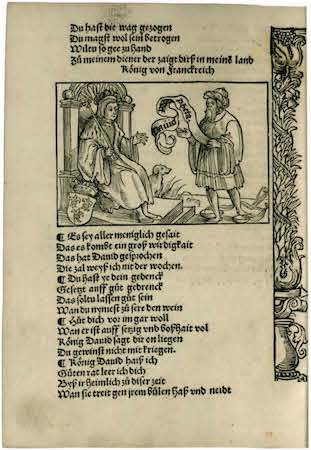 Du hast die wag gezogen
Du magst wol sein betrogen
Wiltu so gee zu hand
Zů meinem diener der zaigt dirß in meinē land
König von Franckreich
Dauid
¶ Es sey aller meniglich gesait
Das es kombt ein groß wirdigkait
Das hat Dauid gesprochen
Die zal weyß ich nit der wochen.
¶ Du hast ye dein gedenck
Gesetzt auff gůt gedrenck
Das soltu lassen gůt sein
Wan du nymest zů sere den wein
¶ Hüt dich vor im gar woll
Wan er ist auff setzig vnd boßhait vol
König Dauid sagt dir on liegen
Du gewinst nicht mit kriegen.
¶ König Dauid haiß ich
Gůten rat leer ich dich
Byß ir heimlich zů diser zeit
Wan sie treit gen jrem bůlen haß vnd neidt